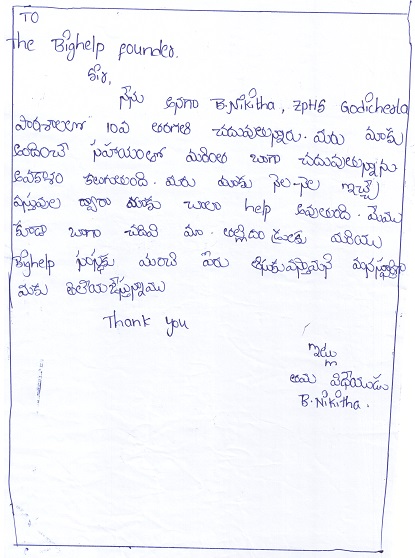 TO
The Bighelp founder.
Sir,
నేను అనగా B.Nikitha, ZPHS Godicherla
పాఠశాలలో 10వ తరగతి చదువుతున్నారు. మీరు మాకు
అందించే సహాయంతో మరింత బాగా చదువుతున్నాను
అవకాశం కలుగుతుంది. మీరు మాకు నెల-నెల ఇచ్చే
వస్తువుల ద్వారా మాకు చాలా help అవుతుంది. మేము
కూడా బాగా చదివి మా తల్లిదం డ్రులకు మరియు
Bighelp సంస్థకు మంచి పేరు తీసుకువస్తామని
మీకు తెలియజేస్తున్నాము
Thank you
ఇట్లు
తమ విధేయుడు
B.Nikitha.